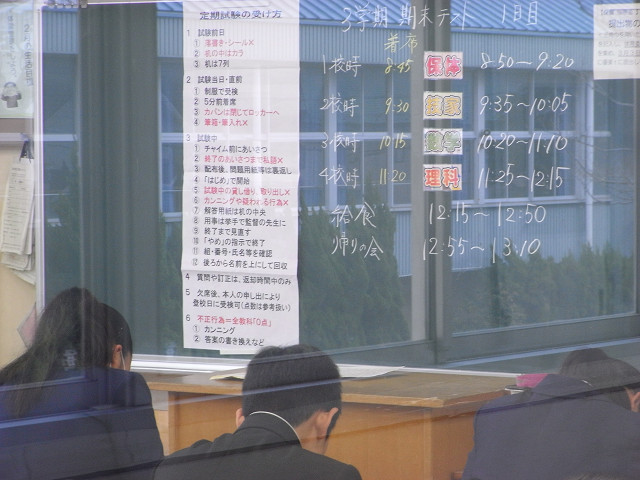 定期試験の受け方
1 試験前日
① 落書き・シール×
② 机の中はカラ
③ 机は7列
2 試験当日・直前
① 制服で受検
② 5分前着席
③ カバンは閉じてロッカーへ
④ 筆箱・筆入れ×
3 試験中
① チャイム前にあいさつ
② 終了のあいさつまで私語×
③ 配布後、問題用紙等は裏返し
④ 「はじめ」で開始
⑤ 試験中の貸し借り、取り出し×
⑥ カンニングや疑われる行為×
⑦ 解答用紙は机の中央
⑧ 用事は挙手で監督の先生に
⑨ 終了まで見直す
⑩ 「やめ」の指示で終了
⑪ 組・番号・氏名等を確認
⑫ 後ろから名前を上にして回収
4 質問や訂正は、返却時間中のみ
5 欠席後、本人の申し出により
登校日に受検可(点数は参考扱い)
6 不正行為=全教科「0点」
① カンニング
② 答案の書き換えなど
3学期 期末テスト 1日目
着席
1校時 8:45 保体 8:50~9:20
2校時 9:30 技家 9:35~10:05
3校時 10:15 10:20~11:10
4校時 11:20 理科 11:25~12:15
給食 12:15~12:50
帰りの会 12:55~13:10